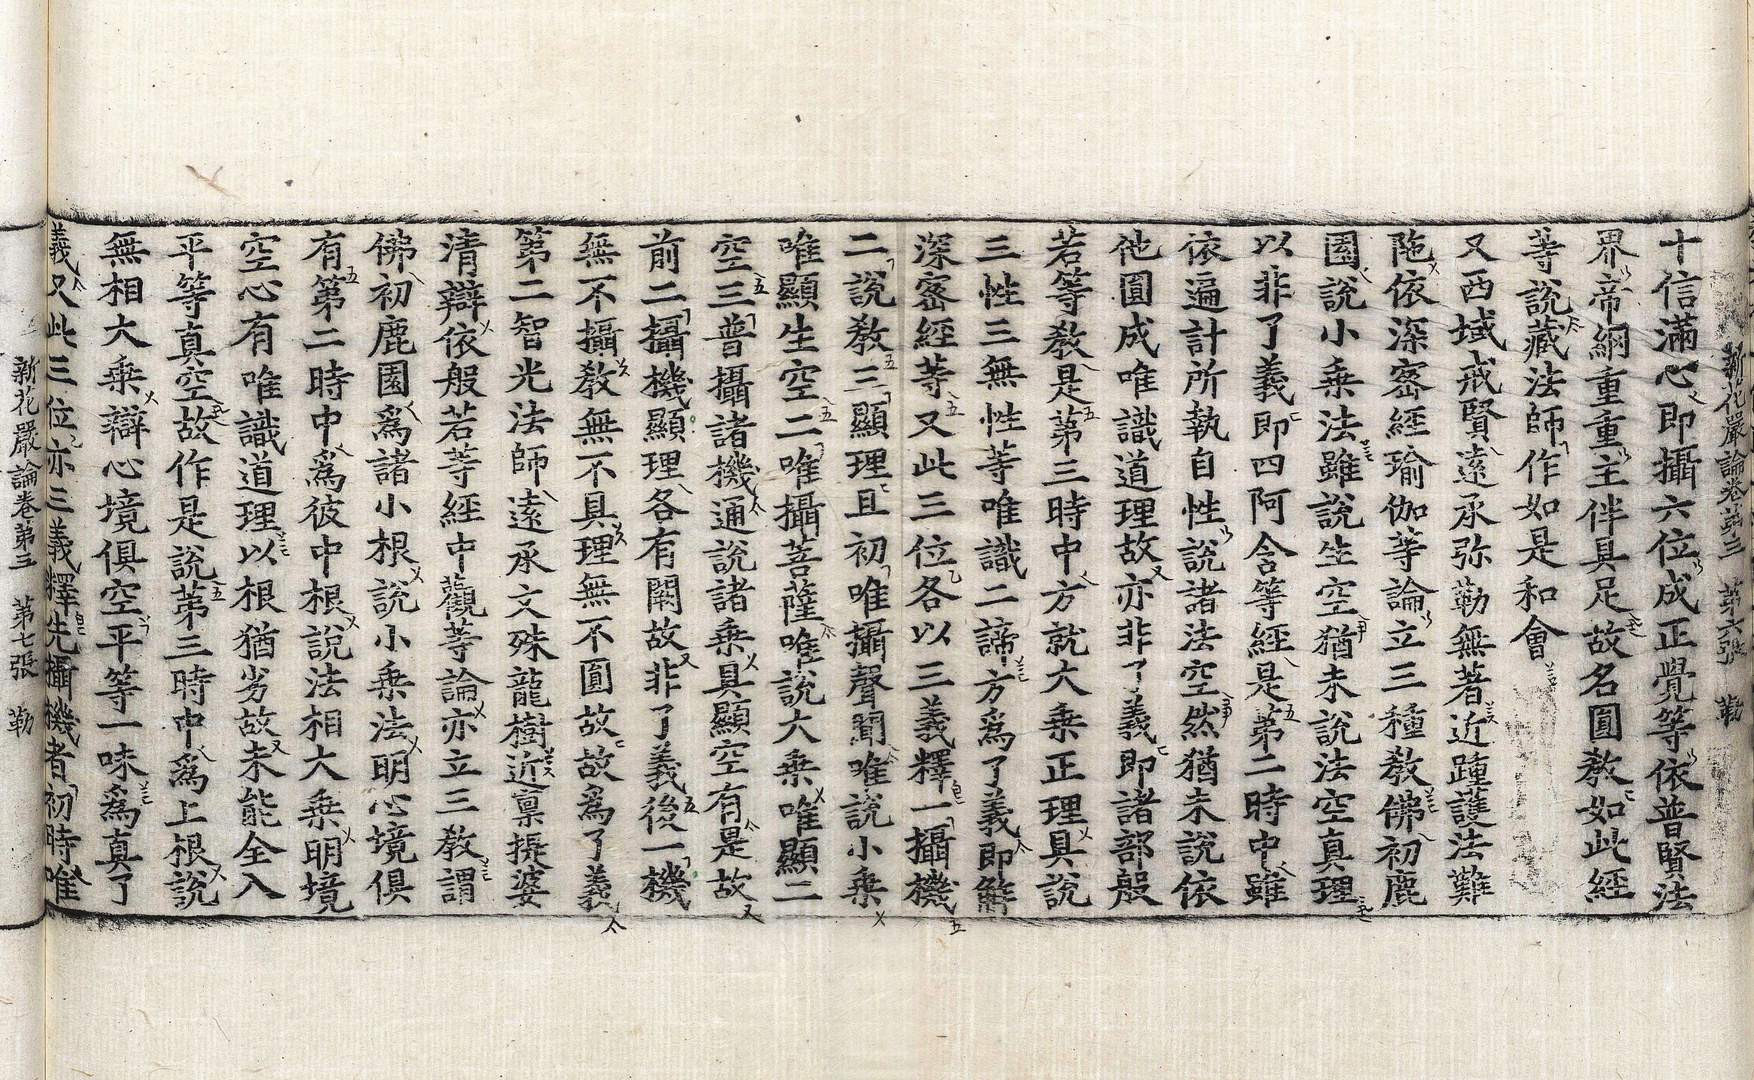 新花嚴論卷第三　第六張　勒
十信滿心即攝六位成正覺等依普賢法
界帝網重重主伴具足故名圓教如此經
等說藏法師作如是和會
又西域戒賢遠承弥勒無著近踵護法難
陁依深密經瑜伽等論立三種教佛初鹿
園說小乗法雖說生空猶未說法空真理
以非了義即四阿含等經是第二時中雖
依遍計所執自性說諸法空然猶未說依
他圓成唯識道理故亦非了義即諸部般
若等教是第三時中方就大乗正理具說
三性三無性等唯識二諦方為了義即解
深密經等又此三位各以三義釋一攝機
二說教三顯理且初唯攝聲聞唯說小乗
唯顯生空二唯攝菩薩唯說大乗唯顯二
空三普攝諸機通說諸乗具顯空有是故
前二攝機顯理各有闕故非了義後一機
無不攝教無不具理無不圓故故為了義
第二智光法師遠承文殊龍樹近稟提婆
清辯依般若等經中觀等論亦立三教謂
佛初鹿園為諸小根說小乗法明心境俱
有第二時中為彼中根說法相大乗明境
空心有唯識道理以根猶劣故未能全入
平等真空故作是說第三時中為上根說
無相大乗辯心境俱空平等一味為真了
義又此三位亦三義釋先攝機者初時唯
新花嚴論卷第三　第七張　勒